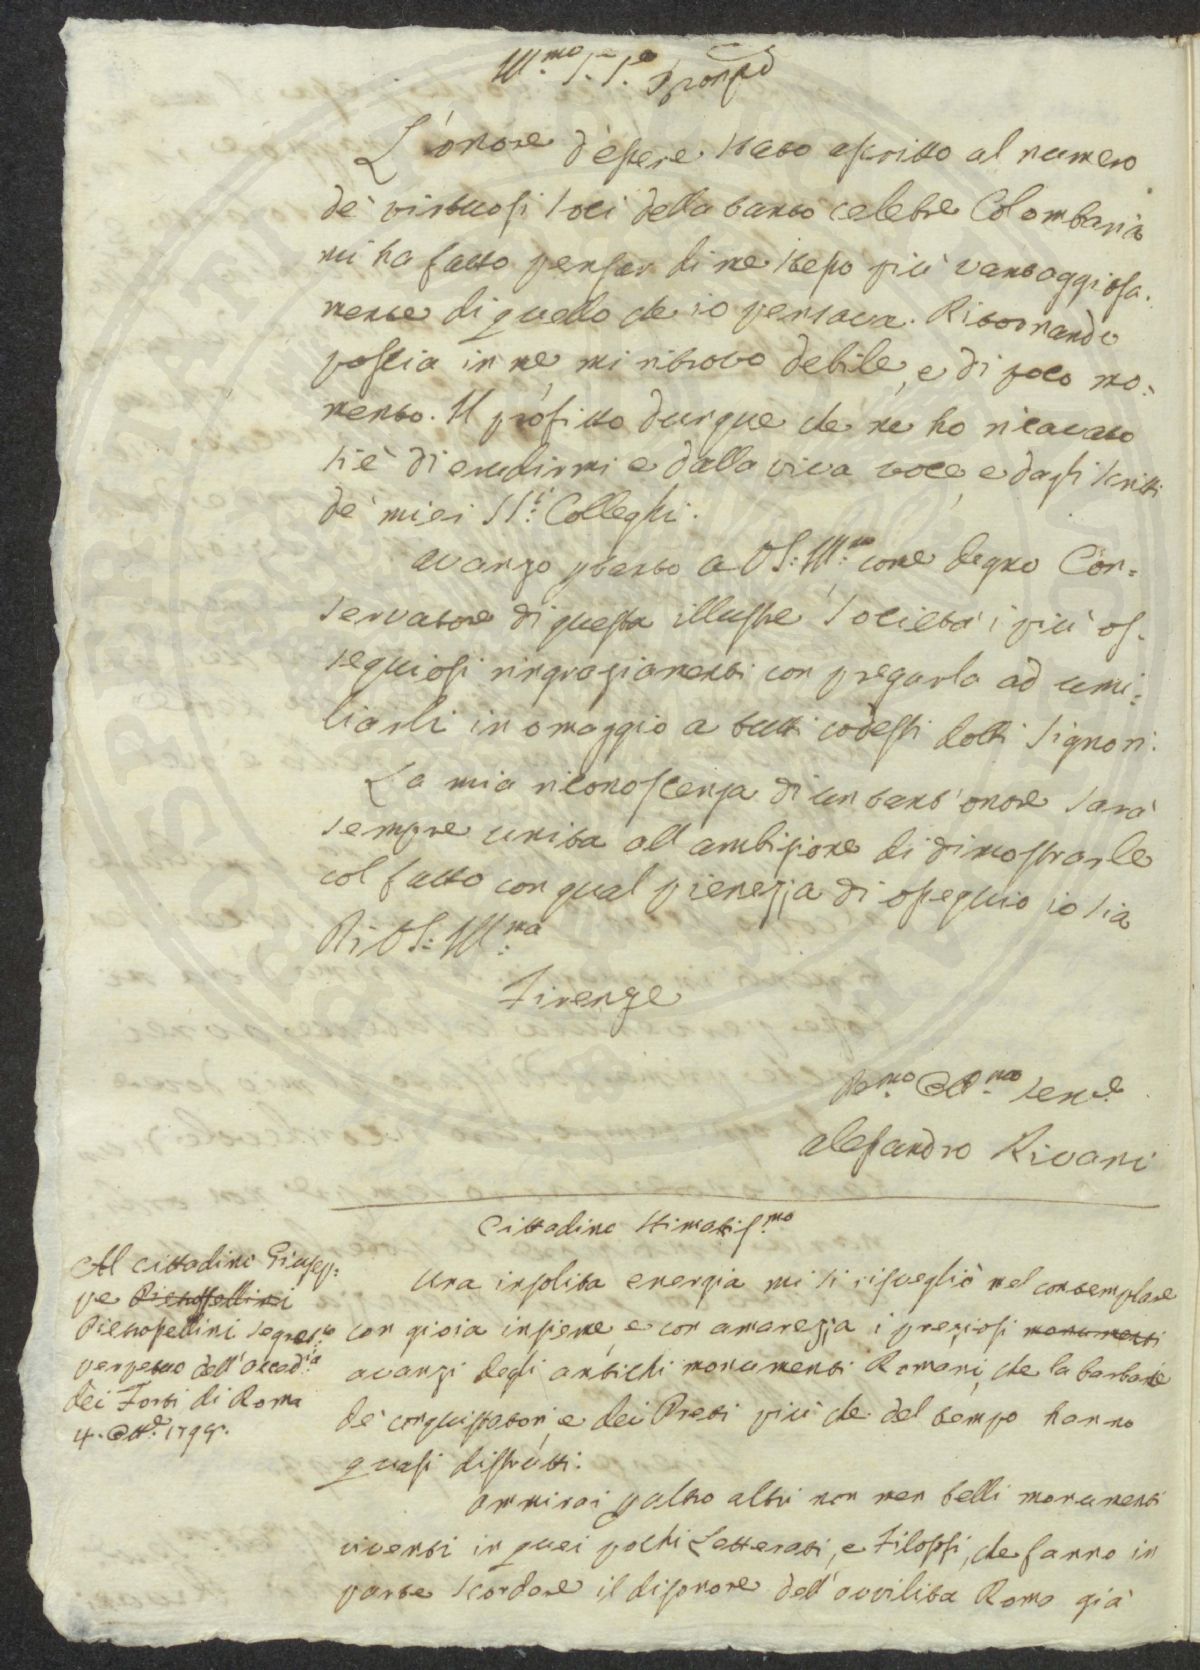 Ill.mo S.r S.r Pron.
L'onore d'essere stato ascritto al numero
de' virtuosi soci della tanto celebre Colombaria
mi ha fatto pensar di me stesso più vantaggiosa-
mente di quello che io pensava. Ritornando
poscia in me mi ritrovo debile, e di poco mo-
mento. Il profitto dunque che ne ho ricavato
si è di erudirmi e dalla viva voce, e dagli scritti
de' miei SS.ri Colleghi.
avanzo pertanto a VS: Ill.ma come degno Con-
servatore di questa illustre Società i più os-
sequiosi ringraziamenti con pregarla ad umi-
liarli in omaggio a tutti codesti dotti Signori.
La mia riconoscenza di un tant'onore sarà
sempre unita all'ambizione di dimostrarle
col fatto con qual pienezza di ossequio io sia
Di VS: Ill.ma
Firenze
De.mo Obb.mo Ser.e
alessandro Rivani
Cittadino Stimatiss.mo
Al Cittadini Giusep-
pe Pietropellini
Pietrosellini Segret.o
perpetuo dell'Accad.a
dei Forti di Roma
4. Ott.e 1798.
Una insolita energia mi si risvegliò nel contemplare
con gioia insieme e con amarezza i preziosi monumenti
avanzi degli antichi monumenti Romani, che la barbarie
de' conquistatori, e dei Preti più che del tempo hanno
quasi distrutti.
ammirai p altro altri non men belli monumenti
viventi in quei pochi Letterati, e Filosofi, che fanno in
parte scordare il disonore dell'avvilita Roma già